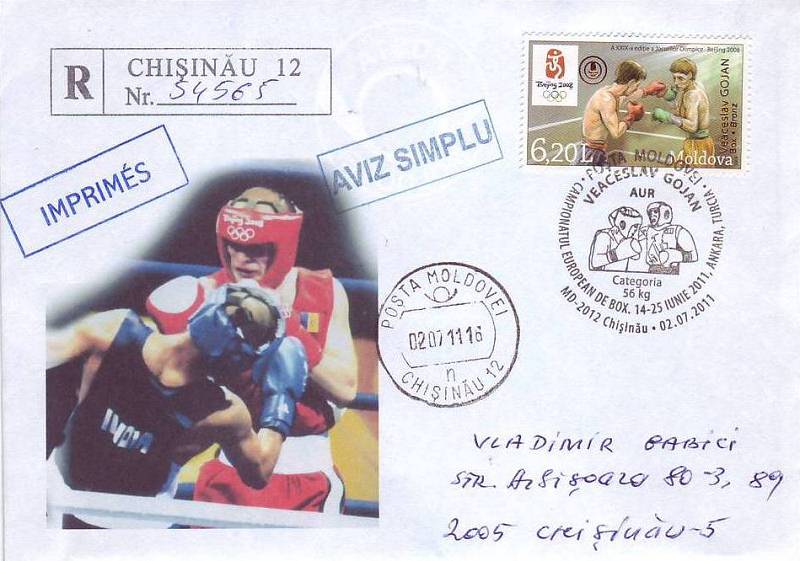 R
CHIŞINĂU 12
Nr. 34565
IMPRIMÉS
AVIZ SIMPLU
A XXIX-a ediţie a Jocurilor Olimpice · Beijing 2008
Beijing 2008
Veaceslav GOJAN
Box • Bronz
6,20L
Moldova
POŞTA MOLDOVEI
VEACESLAV GOJAN
AUR
Categoria
56 kg
CAMPIONATUL EUROPEAN DE BOX. 14-25 IUNIE 2011, ANKARA, TURCIA
MD-2012 Chişinău • 02.07.2011
POŞTA MOLDOVEI
02071116
n
CHIŞINĂU 12
Beijing 2008
INDIA
VLADIMIR BABICI
STR. Albişoara 80-3, 89
2005 CHIŞINĂU-5